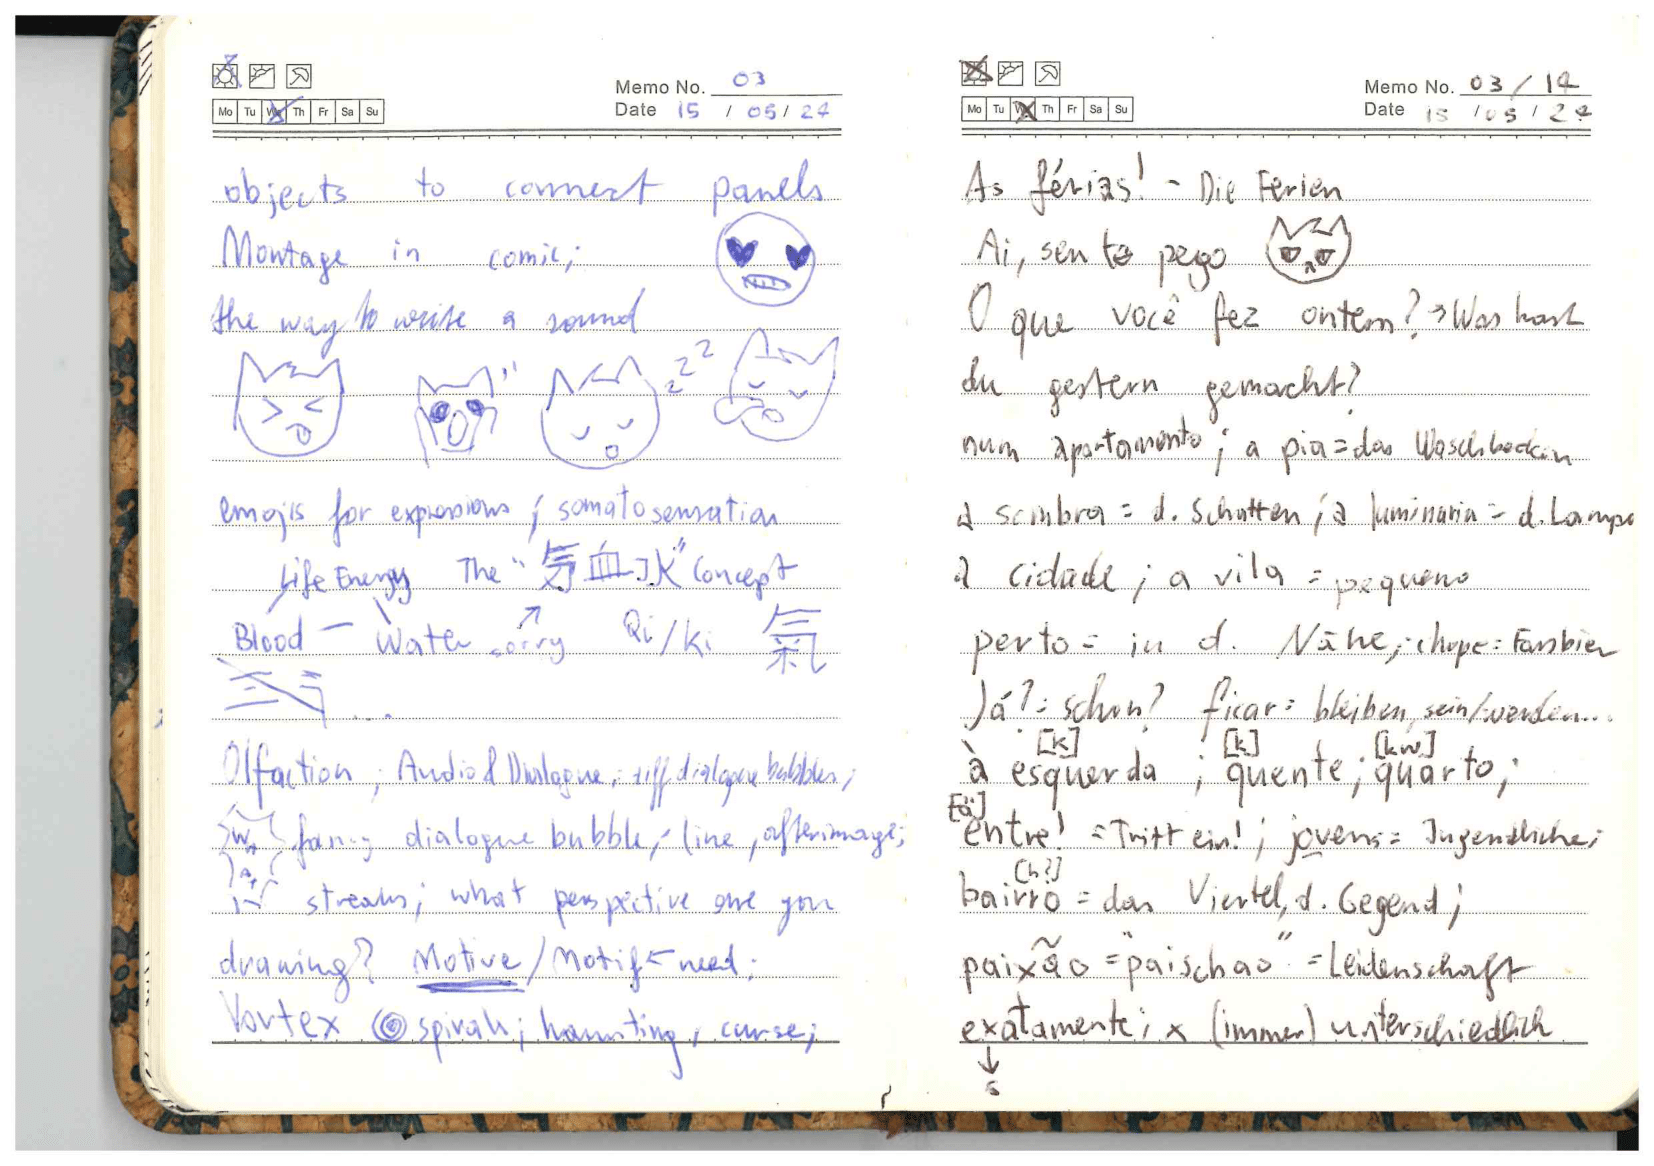 Memo No. 03
Mo Tu We Th Fr Sa Su
Date 15 / 05 / 24
objects to connect panels
Montage in comic;
the way to write a sound
z z z
emojis for expressions ; somatosensation
Life Energy The "気血水" Concept
Blood – Water sorry Qi/Ki 氣
Olfaction ; Audio & Dialogue ; diff dialogue bubbles ;
fancy dialogue bubble ; line , afterimage ;
streaks ; what perspective are you
drawing? Motive / Motif ← need.
Vortex spirals ; haunting , curse ;
Memo No. 03 / 14
Mo Tu We Th Fr Sa Su
Date 15 / 05 / 24
As férias! - Die Ferien
Ai, sen te pego
O que você fez ontem? → Was hast
du gestern gemacht?
num apartamento ; a pia = das Waschbecken
a sombra = d. Schatten ; a luminária = d. Lampe
a cidade ; a vila = pequeno
perto = in d. Nähe ; chope = Fassbier
Já? = schon? ficar = bleiben, sein/werden...
[k] [k] [kw]
à esquerda ; quente ; quarto ;
entre! = Tritt ein! ; jovens = Jugendliche ;
[h?]
bairro = das Viertel, d. Gegend ;
paixão = "paischao" = Leidenschaft
exatamente ; x (immer) unterschiedlich
↓
s